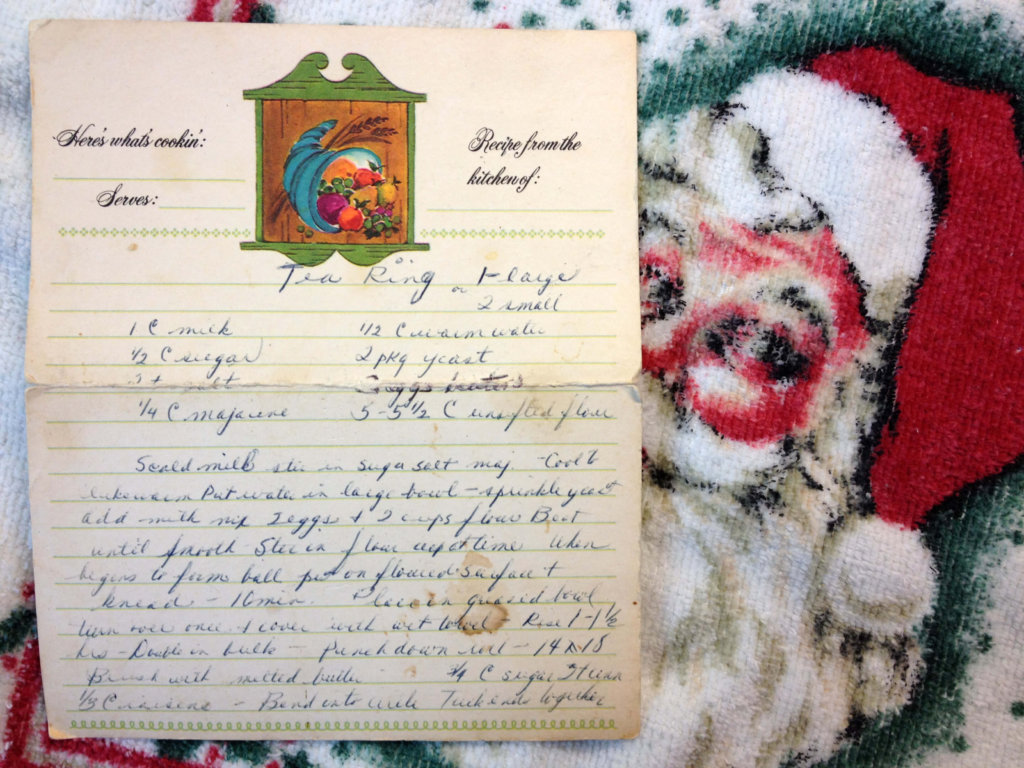 Here's what's cookin':
Recipe from the
kitchen of:
Serves:
Tea Ring or 1-large
2 small
1 C milk 1/2 C warm water
1/2 C sugar 2 pkg yeast
salt eggs
1/4 C majarine 5-5 1/2 C unsifted flour
Scald milk stir in sugar salt maj. Cool to
lukewarm Put water in large bowl - sprinkle yeast
add milk mix 2 eggs + 2 cups flour Beat
until smooth Stir in flour cup at time When
begins to form ball put on floured surface +
knead - 10 min Place in greased bowl
turn over once + cover with wet towel - Rise 1-1 1/2
hrs - Double in bulk - Punch down roll - 14 x 18
Brush with melted butter 3/4 C sugar
1/3 C raisens - Bend into circle Tuck ends together